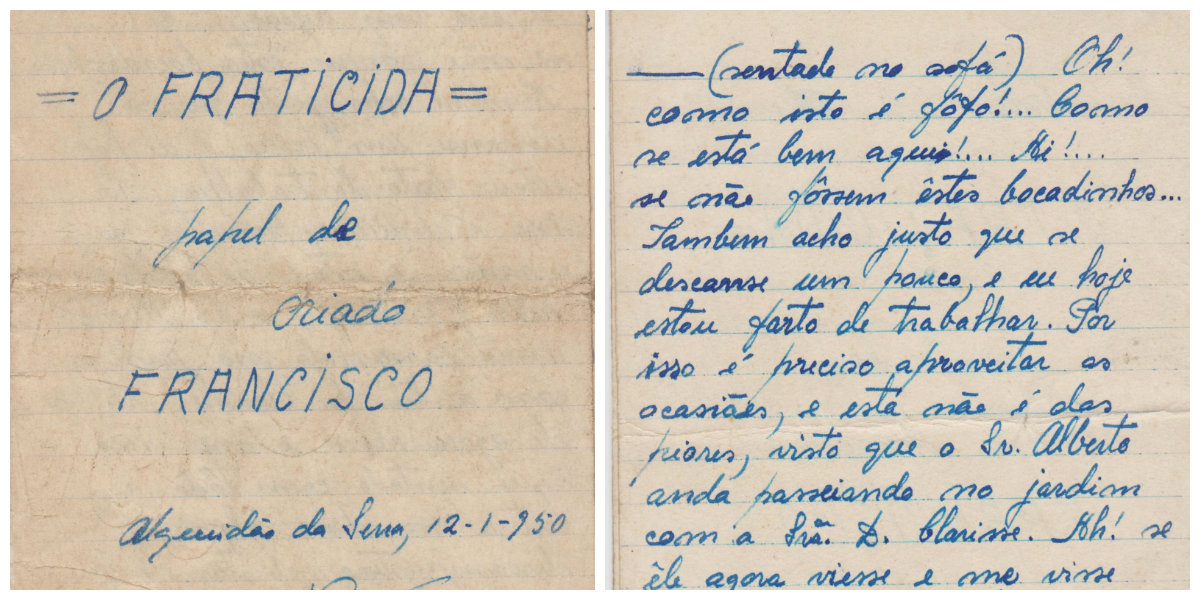 = O FRATICIDA =
papel de
criado
FRANCISCO
Alqueidão da Serra, 12-1-950
— (sentado no sofá) Oh!
como isto é fôfo!... Como
se está bem aqui!... Ai!...
se não fôssem êstes bocadinhos...
Tambem acho justo que se
descanse um pouco, e eu hoje
estou farto de trabalhar. Por
isso é preciso aproveitar as
ocasiões, e esta não é das
piores, visto que o Sr. Alberto
anda passeiando no jardim
com a Srª. D. Clarisse. Ah! se
êle agora viesse e me visse